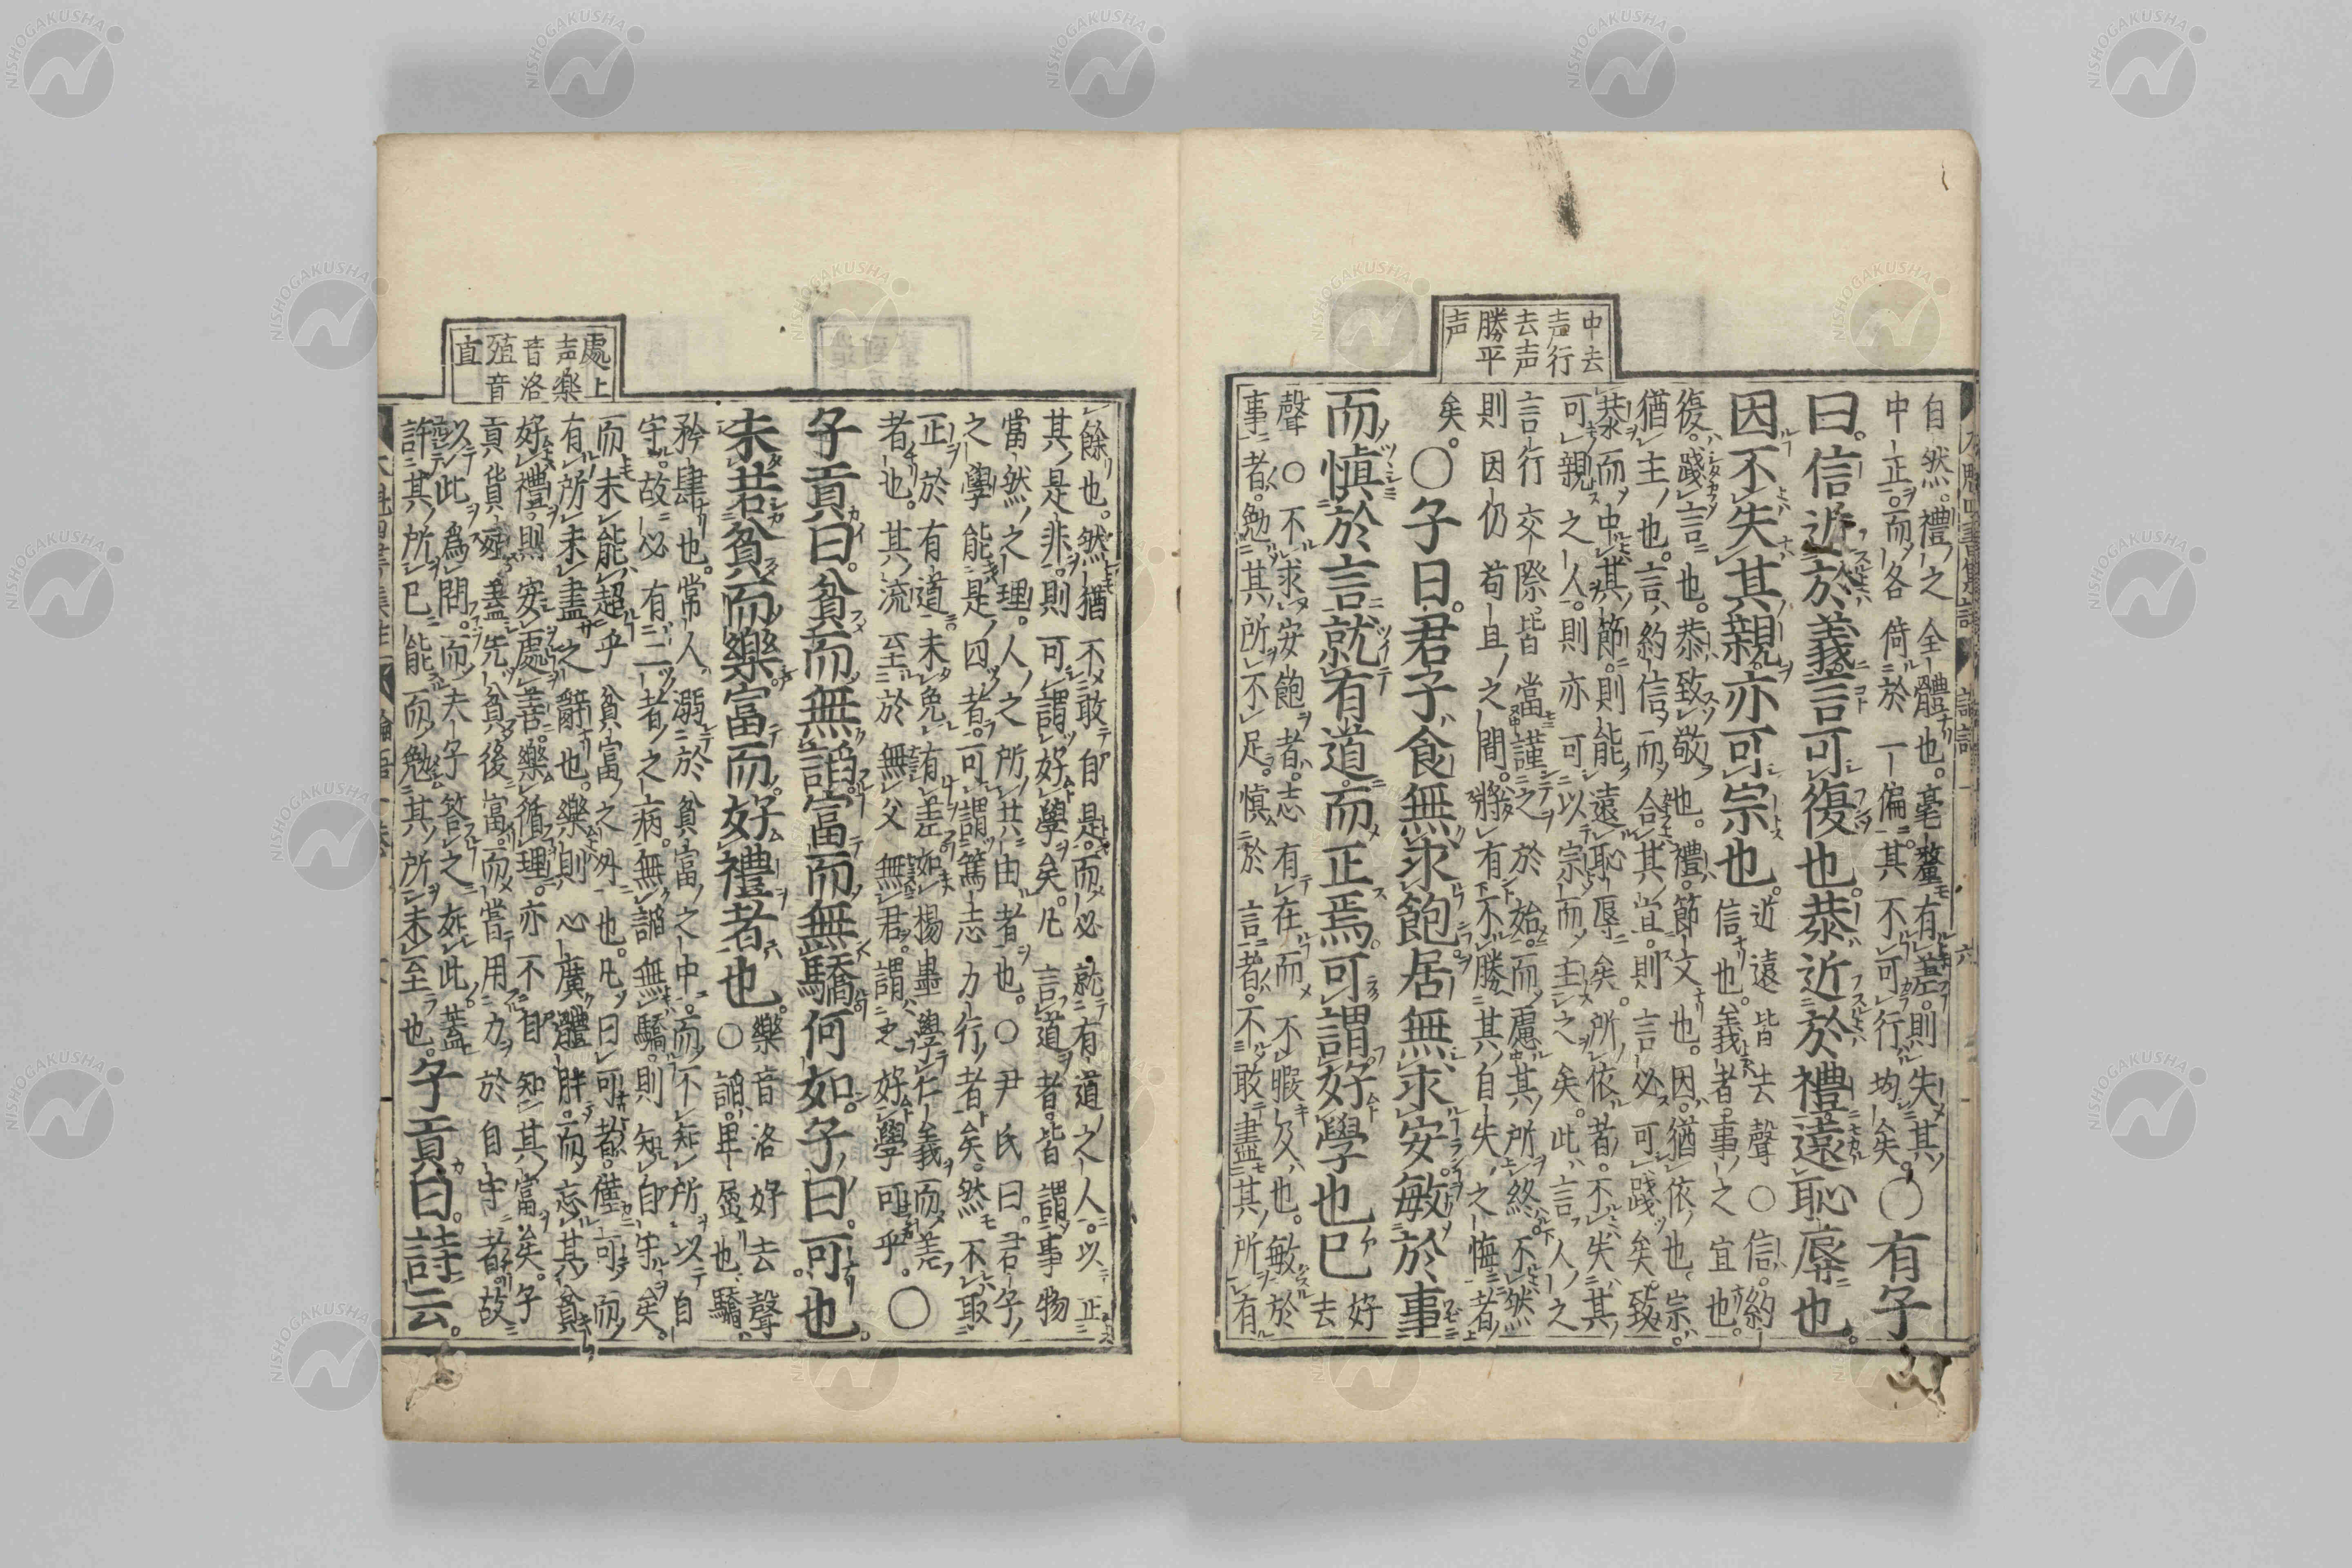 中去
声行
去声
勝平
声
自然。禮之全體也。毫釐有差。則失其
中正。而各倚於一偏。其不可行均矣。〇有子
曰。信近於義。言可復也。恭近於禮。遠恥辱也。
因不失其親。亦可宗也。
近遠皆去聲〇信。約
信也。義者。事之宜也。
復。踐言也。恭。致敬也。禮。節文也。因。猶依也。宗。
猶主也。言約信而合其宜。則言必可踐矣。致
恭而中其節。則能遠恥辱矣。所依者。不失其
可親之人。則亦可以宗而主之矣。此言人之
言行交際。皆當謹之於始。而慮其所終。不然
則因仍苟且之間。將有不勝其自失之悔者
矣。〇子曰。君子食無求飽。居無求安。敏於事
而慎於言。就有道。而正焉。可謂好學也已
好
去
聲〇不求安飽者。志有在而不暇及也。敏於
事者。勉其所不足。慎於言者。不敢盡其所有
處上
声樂
音洛
殖音
直
餘也。然猶不敢自是。而必就有道之人。以正
其是非。則可謂好學矣。凡言道者。皆謂事物
當然之理。人之所共由者也。〇尹氏曰。君子
之學能是四者。可謂篤志力行者矣。然不取
正於有道。未免有差。如楊墨學仁義而差
者也。其流至於無父無君。謂之好學可乎。〇
子貢曰。貧而無諂。富而無驕。何如。子曰。可也。
未若貧而樂。富而好禮者也。
樂音洛好去聲
〇諂。卑屈也。驕。
矜肆也。常人溺於貧富之中。而不知所以自
守。故必有二者之病。無諂無驕。則知自守矣。
而未能超乎貧富之外也。凡曰可者。僅可而
有所未盡之辭也。樂則心廣體胖。而忘其貧
好禮。則安處善。樂循理。亦不自知其富矣。子
貢貨殖。蓋先貧後富。而嘗用力於自守者。故
以此為問。而夫子答之如此。蓋
許其所已能。而勉其所未至也。子貢曰。詩云。